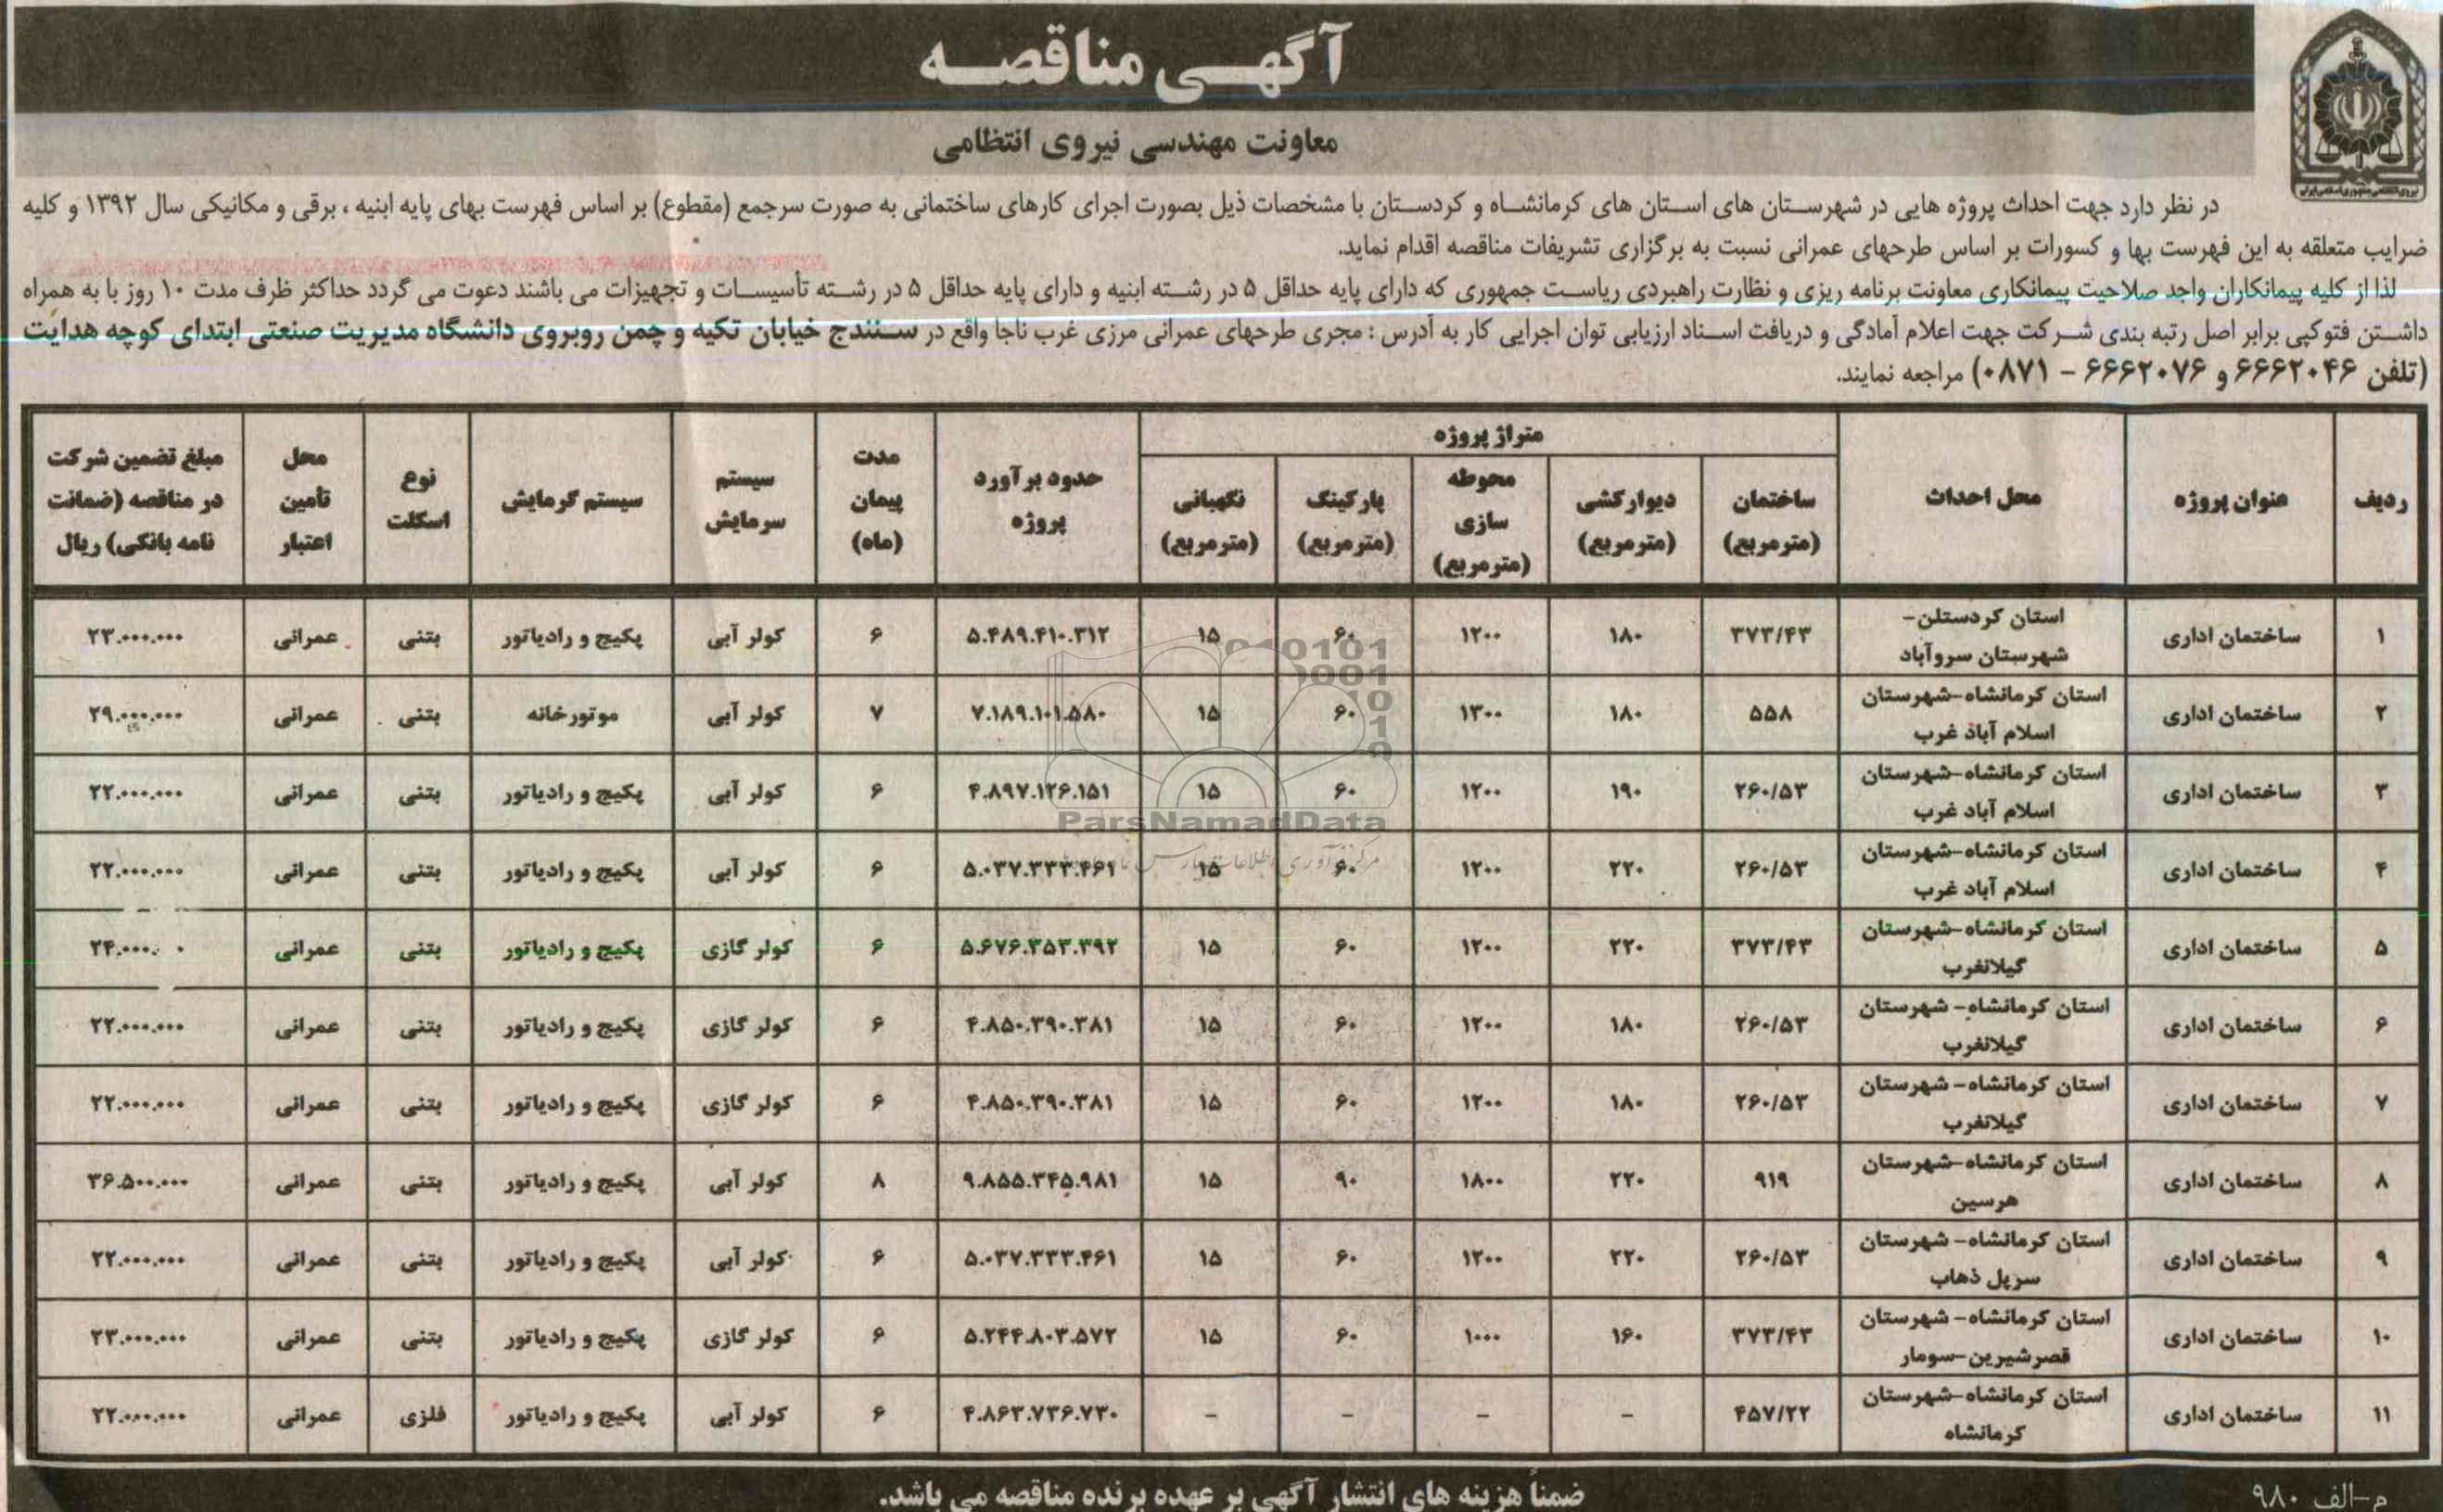 آگهی مناقصه
معاونت مهندسی نیروی انتظامی
در نظر دارد جهت احداث پروژه هایی در شهرستان های استان های کرمانشاه و کردستان با مشخصات ذیل بصورت اجرای کارهای ساختمانی به صورت سرجمع (مقطوع) بر اساس فهرست بهای پایه ابنیه ، برقی و مکانیکی سال ۱۳۹۲ و کلیه
ضرایب متعلقه به این فهرست بها و کسورات بر اساس طرحهای عمرانی نسبت به برگزاری تشریفات مناقصه اقدام نماید.
لذا از کلیه پیمانکاران واجد صلاحیت پیمانکاری معاونت برنامه ریزی و نظارت راهبردی ریاست جمهوری که دارای پایه حداقل ۵ در رشته ابنیه و دارای پایه حداقل ۵ در رشته تأسیسات و تجهیزات می باشند دعوت می گردد حداکثر ظرف مدت ۱۰ روز با به همراه
داشتن فتوکپی برابر اصل رتبه بندی شرکت جهت اعلام آمادگی و دریافت اسناد ارزیابی توان اجرایی کار به آدرس : مجری طرحهای عمرانی مرزی غرب ناجا واقع در سنندج خیابان تکیه و چمن روبروی دانشگاه مدیریت صنعتی ابتدای کوچه هدایت
(تلفن ۶۶۶۲۰۴۶ و ۶۶۶۲۰۷۶ – ۰۸۷۱) مراجعه نمایند.
ردیف عنوان پروژه محل احداث متراژ پروژه ساختمان (مترمربع) دیوارکشی (مترمربع) محوطه سازی (مترمربع) پارکینگ (مترمربع) نگهبانی (مترمربع) حدود برآورد پروژه مدت پیمان (ماه) سیستم سرمایش سیستم گرمایش نوع اسکلت محل تأمین اعتبار مبلغ تضمین شرکت در مناقصه (ضمانت نامه بانکی) ریال
۱ ساختمان اداری استان کردستلن- شهرستان سروآباد ۳۷۳/۴۳ ۱۸۰ ۱۲۰۰ ۶۰ ۱۵ ۵.۴۸۹.۴۱۰.۳۱۲ ۶ کولر آبی پکیج و رادیاتور بتنی عمرانی ۲۳.۰۰۰.۰۰۰
۲ ساختمان اداری استان کرمانشاه-شهرستان اسلام آباد غرب ۵۵۸ ۱۸۰ ۱۳۰۰ ۶۰ ۱۵ ۷.۱۸۹.۱۰۱.۵۸۰ ۷ کولر آبی موتورخانه بتنی عمرانی ۲۹.۰۰۰.۰۰۰
۳ ساختمان اداری استان کرمانشاه-شهرستان اسلام آباد غرب ۲۶۰/۵۳ ۱۹۰ ۱۲۰۰ ۶۰ ۱۵ ۴.۸۹۷.۱۲۶.۱۵۱ ۶ کولر آبی پکیج و رادیاتور بتنی عمرانی ۲۲.۰۰۰.۰۰۰
۴ ساختمان اداری استان کرمانشاه-شهرستان اسلام آباد غرب ۲۶۰/۵۳ ۲۲۰ ۱۲۰۰ ۶۰ ۱۵ ۵.۰۳۷.۳۳۳.۴۶۱ ۶ کولر آبی پکیج و رادیاتور بتنی عمرانی ۲۲.۰۰۰.۰۰۰
۵ ساختمان اداری استان کرمانشاه-شهرستان گیلانغرب ۳۷۳/۴۳ ۲۲۰ ۱۲۰۰ ۶۰ ۱۵ ۵.۶۷۶.۳۵۳.۳۹۲ ۶ کولر گازی پکیج و رادیاتور بتنی عمرانی ۲۴.۰۰۰.۰۰۰
۶ ساختمان اداری استان کرمانشاه- شهرستان گیلانغرب ۲۶۰/۵۳ ۱۸۰ ۱۲۰۰ ۶۰ ۱۵ ۴.۸۵۰.۳۹۰.۳۸۱ ۶ کولر گازی پکیج و رادیاتور بتنی عمرانی ۲۲.۰۰۰.۰۰۰
۷ ساختمان اداری استان کرمانشاه- شهرستان گیلانغرب ۲۶۰/۵۳ ۱۸۰ ۱۲۰۰ ۶۰ ۱۵ ۴.۸۵۰.۳۹۰.۳۸۱ ۶ کولر گازی پکیج و رادیاتور بتنی عمرانی ۲۲.۰۰۰.۰۰۰
۸ ساختمان اداری استان کرمانشاه-شهرستان هرسین ۹۱۹ ۲۲۰ ۱۸۰۰ ۹۰ ۱۵ ۹.۸۵۵.۳۴۵.۹۸۱ ۸ کولر آبی پکیج و رادیاتور بتنی عمرانی ۳۶.۵۰۰.۰۰۰
۹ ساختمان اداری استان کرمانشاه- شهرستان سرپل ذهاب ۲۶۰/۵۳ ۲۲۰ ۱۲۰۰ ۶۰ ۱۵ ۵.۰۳۷.۳۳۳.۴۶۱ ۶ کولر آبی پکیج و رادیاتور بتنی عمرانی ۲۲.۰۰۰.۰۰۰
۱۰ ساختمان اداری استان کرمانشاه- شهرستان قصرشیرین-سومار ۳۷۳/۴۳ ۱۶۰ ۱۰۰۰ ۶۰ ۱۵ ۵.۲۴۴.۸۰۳.۵۷۲ ۶ کولر گازی پکیج و رادیاتور بتنی عمرانی ۲۳.۰۰۰.۰۰۰
۱۱ ساختمان اداری استان کرمانشاه-شهرستان کرمانشاه ۴۵۷/۲۲ – – – – – ۴.۸۶۳.۷۳۶.۷۳۰ ۶ کولر آبی پکیج و رادیاتور فلزی عمرانی ۲۲.۰۰۰.۰۰۰
ParsNamadData
ضمناً هزینه های انتشار آگهی بر عهده برنده مناقصه می باشد.
م-الف ۹۸۰